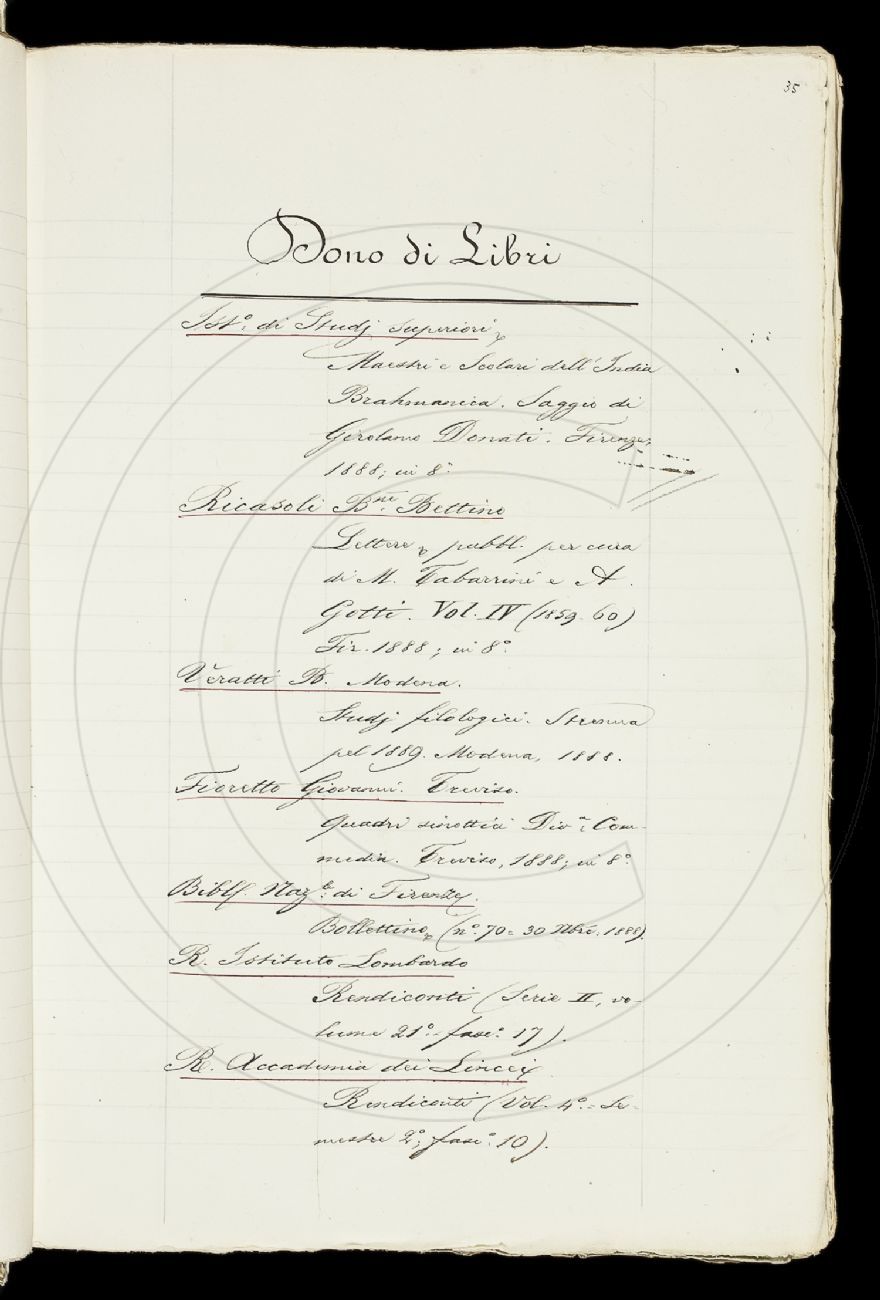 35
Dono di Libri
Ist.º di Studj superiori
Maestri e Scolari dell'India
Brahmanica. Saggio di
Gerolamo Donati. Firenze,
1888; in 8º
Ricasoli B.ne Bettino
Lettere pubbl. per cura
di M. Tabarrini e A.
Gotti. Vol. IV (1859-60)
Fir. 1888; in 8º
Veratti B. Modena.
Studj filologici. Strenna
pel 1889. Modena, 1888.
Fioretto Giovanni. Treviso.
Quadri sinottici Div.ª Com-
media. Treviso, 1888; in 8º
Naz.le di Firenze
Bollettino (nº 70= 30 Nbre. 1888).
R. Istituto Lombardo
Rendiconti (Serie II, vo-
lume 21º- fasc.º 17).
R. Accademia dei Lincei
Rendiconti (Vol. 4º= Se-
mestre 2º; fasc.º 10).